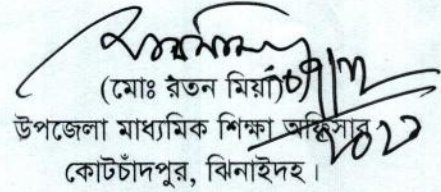 (মোঃ রতন মিয়া)
উপজেলা মাধ্যমিক শিক্ষা অফিসার
কোটচাঁদপুর, ঝিনাইদহ।